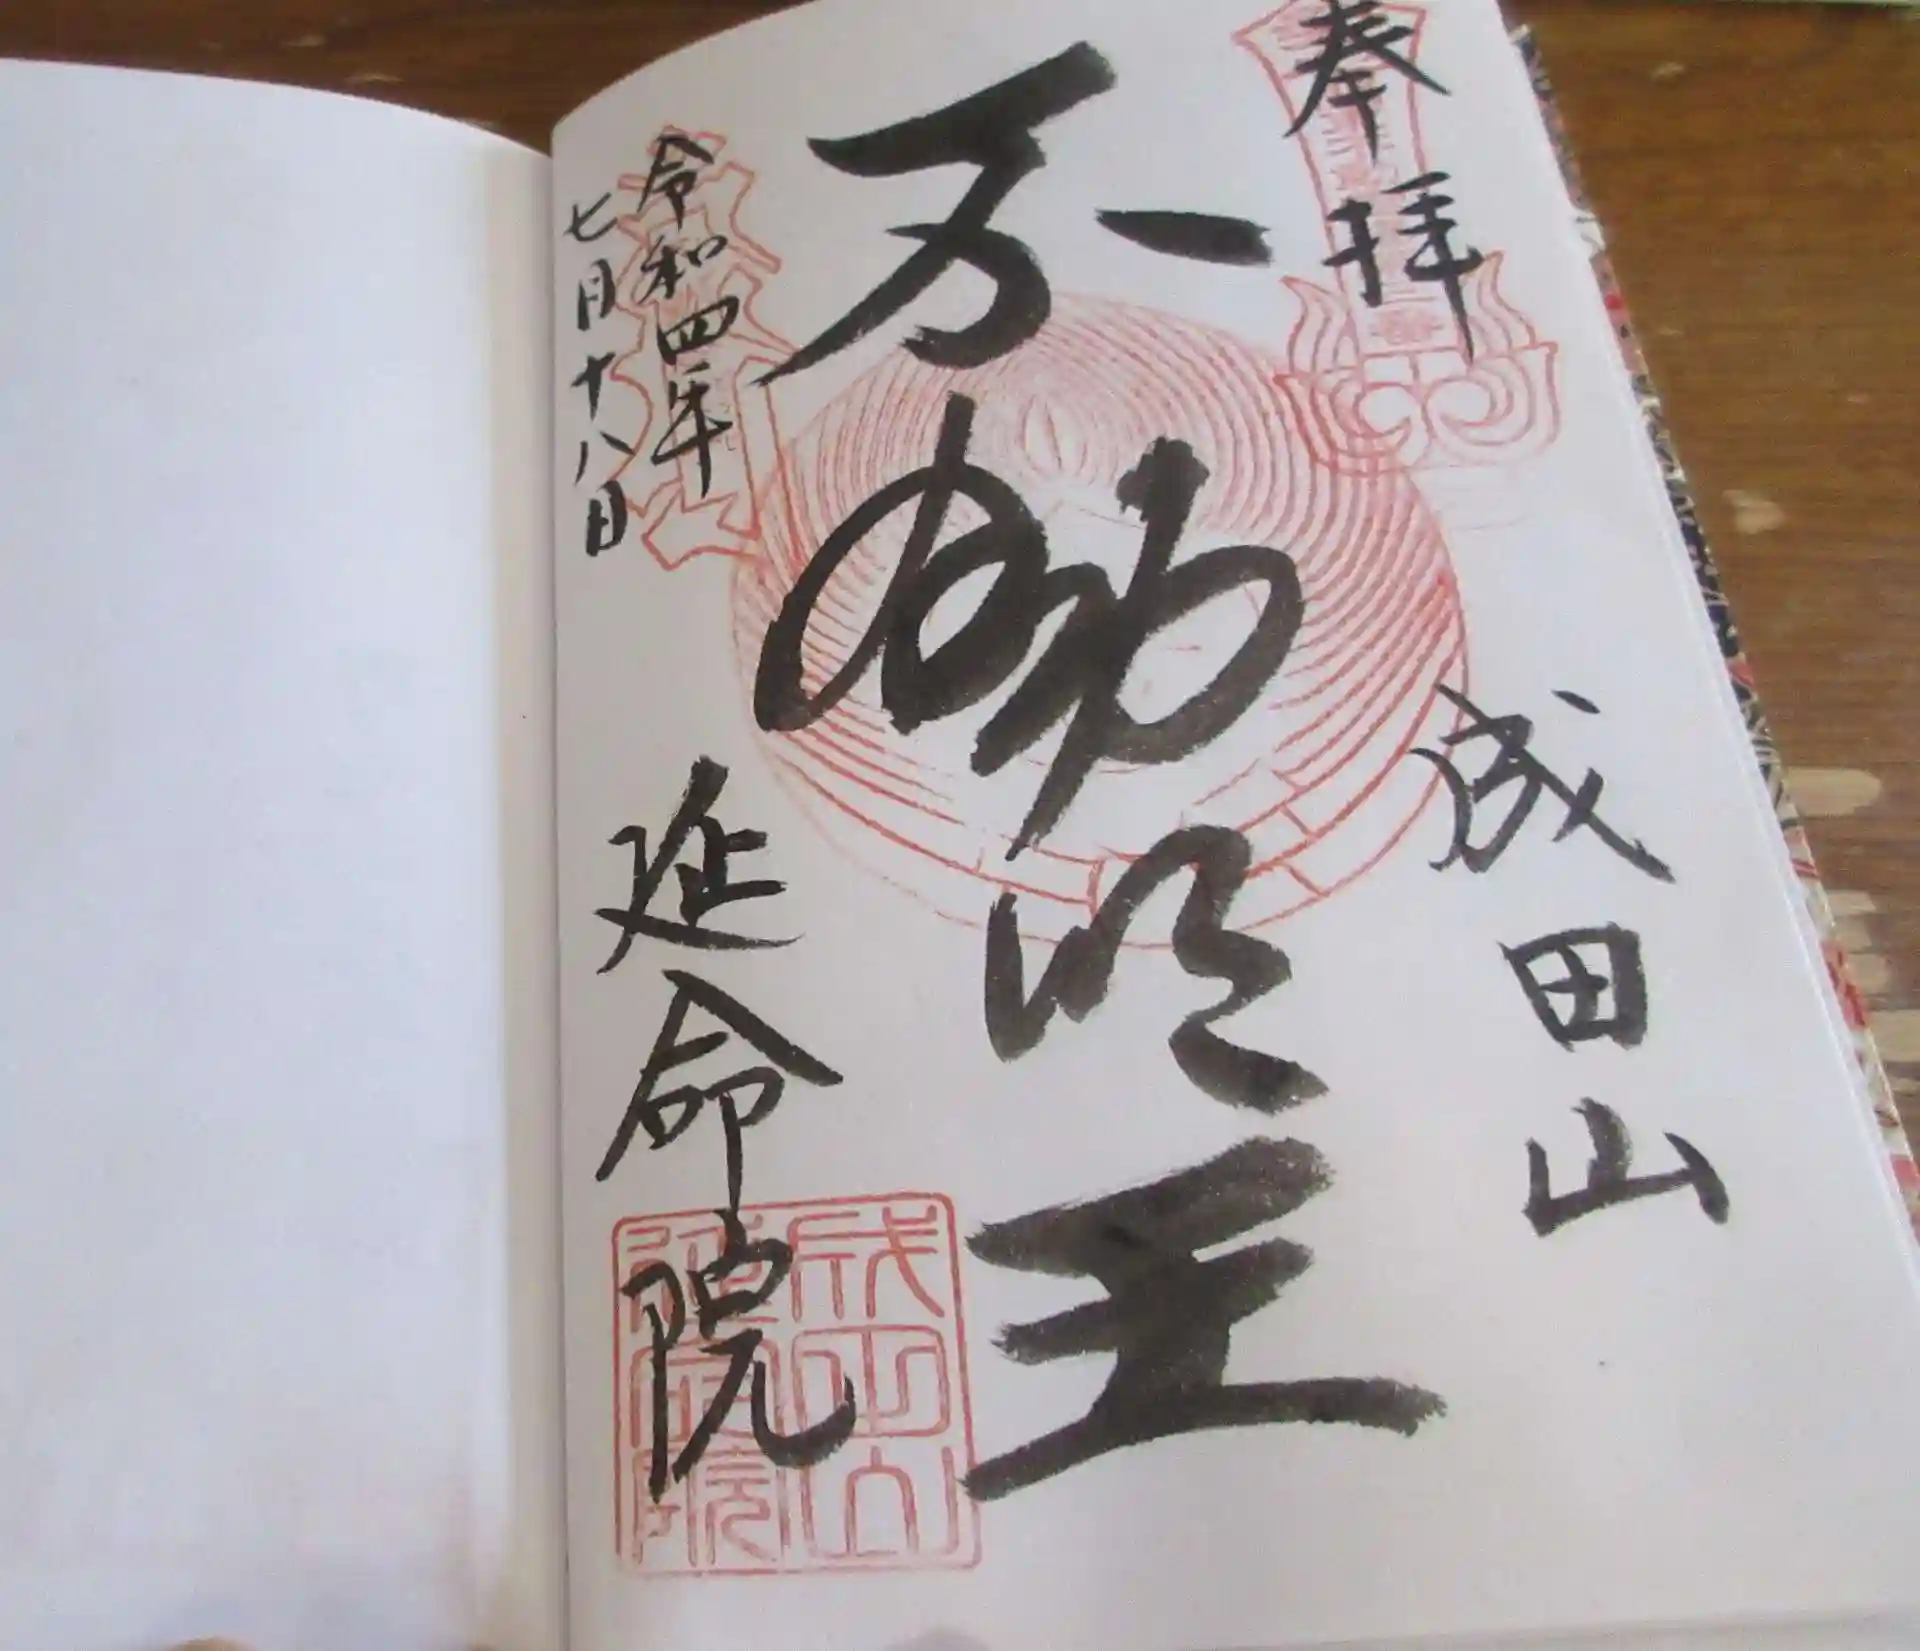 奉拝
成田山
不動明王
令和四年
七月十八日
延命院
成田山
延命院